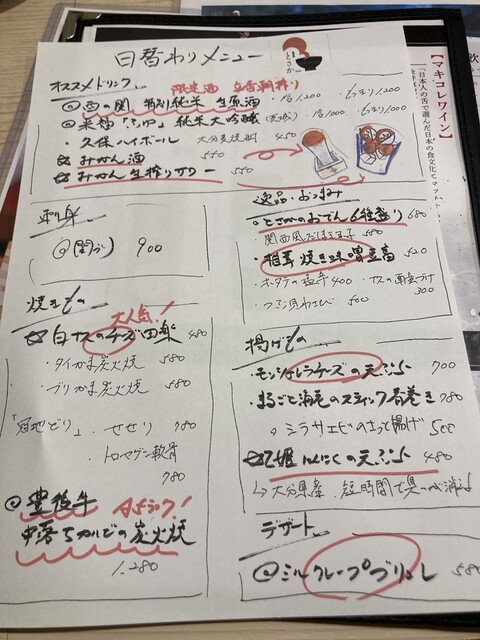 日替わりメニュー
とさか
オススメドリンク
限定酒
◎西の関 特別純米 生原酒 1合1,200
純米大吟醸 (茨城) 1合1,000
・久保ハイボール 大分麦焼酎 450
☆みかん酒 550
☆みかん生搾りサワー 550
刺身
◎(関)ぶり 900
焼きもの
大人気!
☆白ナスのチーズ田楽 480
・タイかま炭火焼 580
・ブリかま炭火焼 580
せせり 780
・トロセゲン軟骨 780
◎豊後牛 A5ランク!
中落ちカルビの炭火焼
1,280
逸品・おつまみ
・とさかのおでん6種盛り 680
関西風だしまき玉子 580
・椎茸焼き味噌豆腐 520
・ホタテの塩辛 400
300
500
揚げもの
・モッツァレラチーズの天ぷら 700
・まるごと海老のスティック春巻き 780
・シラサエビのさっと揚げ 500
☆乙姫にんにくの天ぷら 480
↳大分県産、短時間で臭いが減少
デザート
◎ミルクレープブリュレ 580
【マキコレワイン】
「日本人の舌で選んだ日本の食文化とマッチ